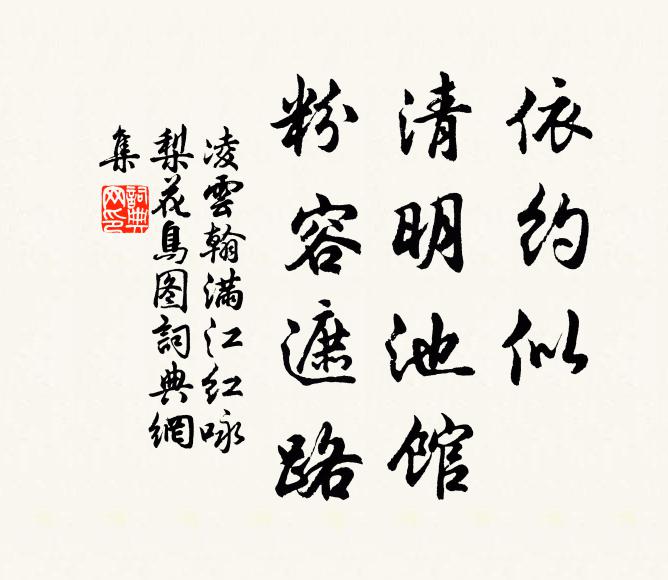 依约似
清明池馆
粉容遮路
凌雲翰满江红咏
梨花鳥图詞典網
集
詞典网印